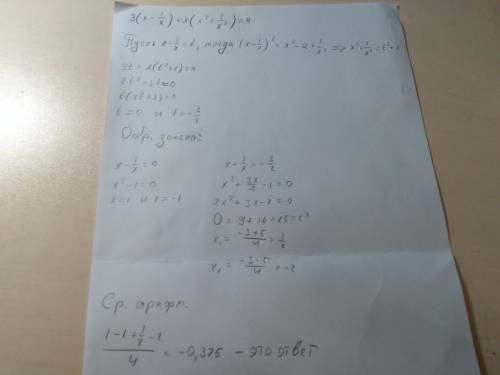 3(x - 1/x) + 2(x² + 1/x²) = 4
Пусть x - 1/x = t, тогда (x - 1/x)² = x² - 2 + 1/x² => x² + 1/x² = t² + 2
3t + 2(t² + 2) = 4
2t² + 3t = 0
t(2t + 3) = 0
t = 0 и t = -3/2
Обр. замена:
x - 1/x = 0
x² - 1 = 0
x = 1 и x = -1
x - 1/x = -3/2
x² + 3x/2 - 1 = 0
2x² + 3x - 2 = 0
D = 9 + 16 = 25 = 5²
x₁ = (-3+5)/4 = 1/2
x₂ = (-3-5)/4 = -2
Ср. арифм.
(1 - 1 + 1/2 - 2)/4 = -0,375 - это ответ